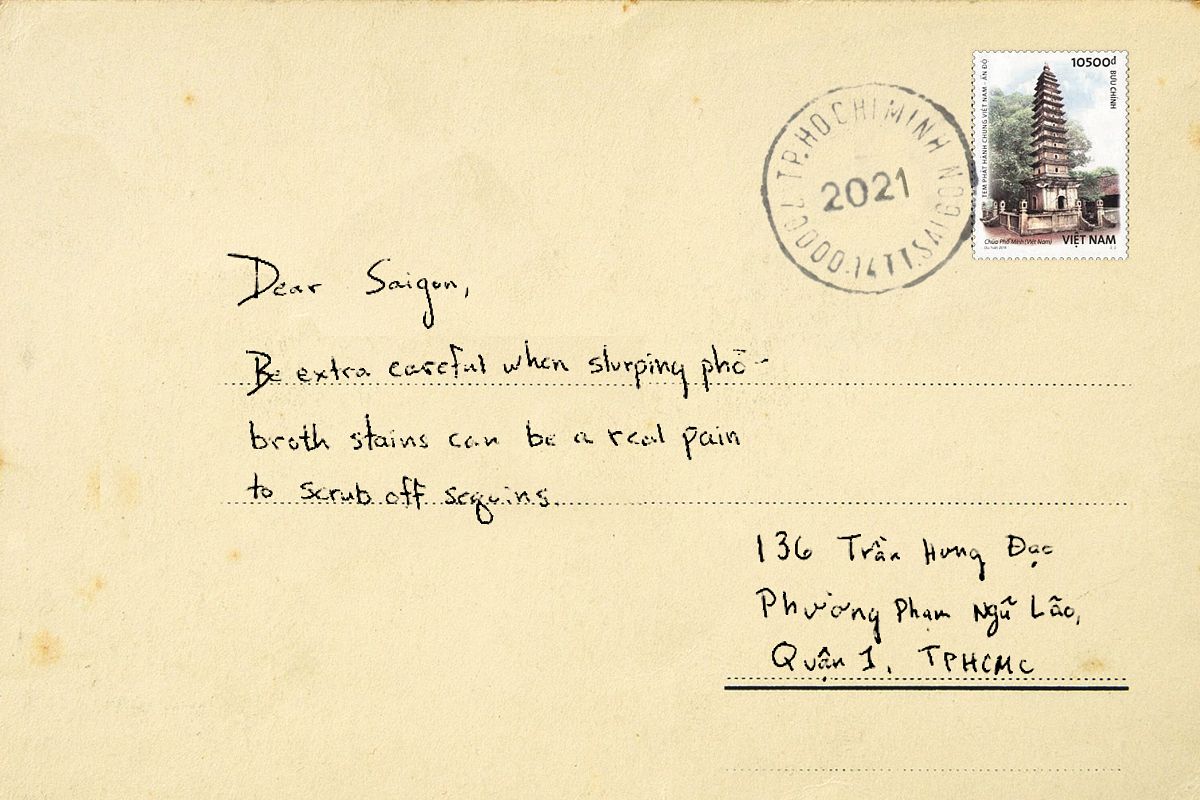 10500đ
BƯU CHÍNH
TEM PHÁT HÀNH CHUNG VIỆT NAM - ẤN ĐỘ
Chùa Phổ Minh (Việt Nam)
VIỆT NAM
700000.14TT.SAIGON TP.HO CHI MINH
2021
Dear Saigon,
Be extra careful when slurping phở -
broth stains can be a real pain
to scrub off sequins.
136 Trần Hung Đạo
Phường Phạm Ngũ Lão,
Quận 1, TPHCMC